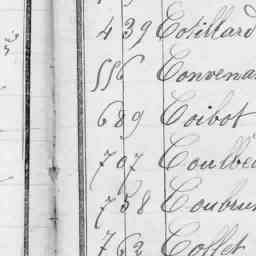 439 Cotillard
556 Convenan
689 Coibot
707 Coulbea
738 Coubrun
762 Collet